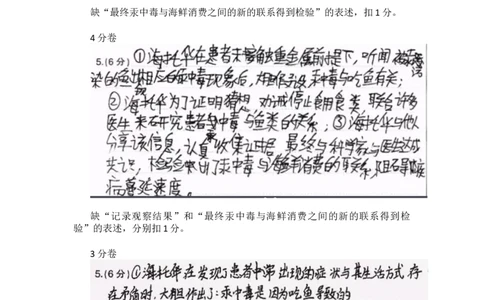 缺“最终汞中毒与海鲜消费之间的新的联系得到检验”的表述，扣 1 分。
4 分卷
5.(6分)①海托华在患者未接触重金属前提下，听闻被污
染的鱼出现后的汞中毒现象后，相信汞中毒与吃鱼有关；
②海托华为了证明猜想，劝诫停止食用鱼类，联合许多
医生来研究患者中毒与鱼类的关系；③海托华与他人
分享该信息，认真收集证据，最终与科学家与医生达成
共识，检验出了汞中毒与海鲜消费的联系，阻碍
病蔓延速度。
缺“记录观察结果”和“最终汞中毒与海鲜消费之间的新的联系得到检
验”的表述，分别扣 1 分。
3 分卷
5.(6分)①海托华在发现了患者中常出现的症状与其生活方式存
在矛盾时，大胆作出了：汞中毒是因为吃鱼导致的